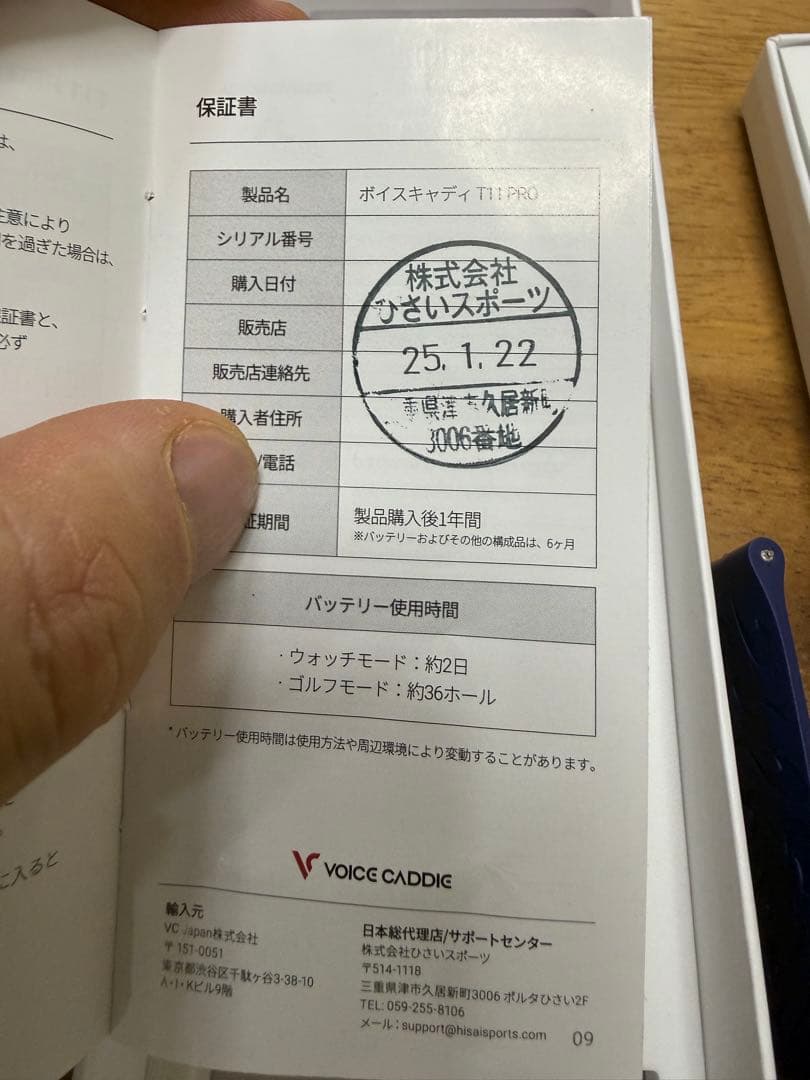 は、
注意により
を過ぎた場合は、
証書と、
必ず
に入ると
保証書
製品名 ボイスキャディ T11 PRO
シリアル番号
購入日付
販売店
販売店連絡先
購入者住所
/電話
証期間 製品購入後1年間
※バッテリーおよびその他の構成品は、6ヶ月
株式会社
ひさいスポーツ
25.1.22
重県津市久居新町
3006番地
バッテリー使用時間
・ウォッチモード：約2日
・ゴルフモード：約36ホール
*バッテリー使用時間は使用方法や周辺環境により変動することがあります。
VOICE CADDIE
輸入元
VC Japan株式会社
〒151-0051
東京都渋谷区千駄ヶ谷3-38-10
A・I・Kビル9階
日本総代理店/サポートセンター
株式会社ひさいスポーツ
〒514-1118
三重県津市久居新町3006 ポルタひさい2F
TEL: 059-255-8106
メール：support@hisaisports.com
09